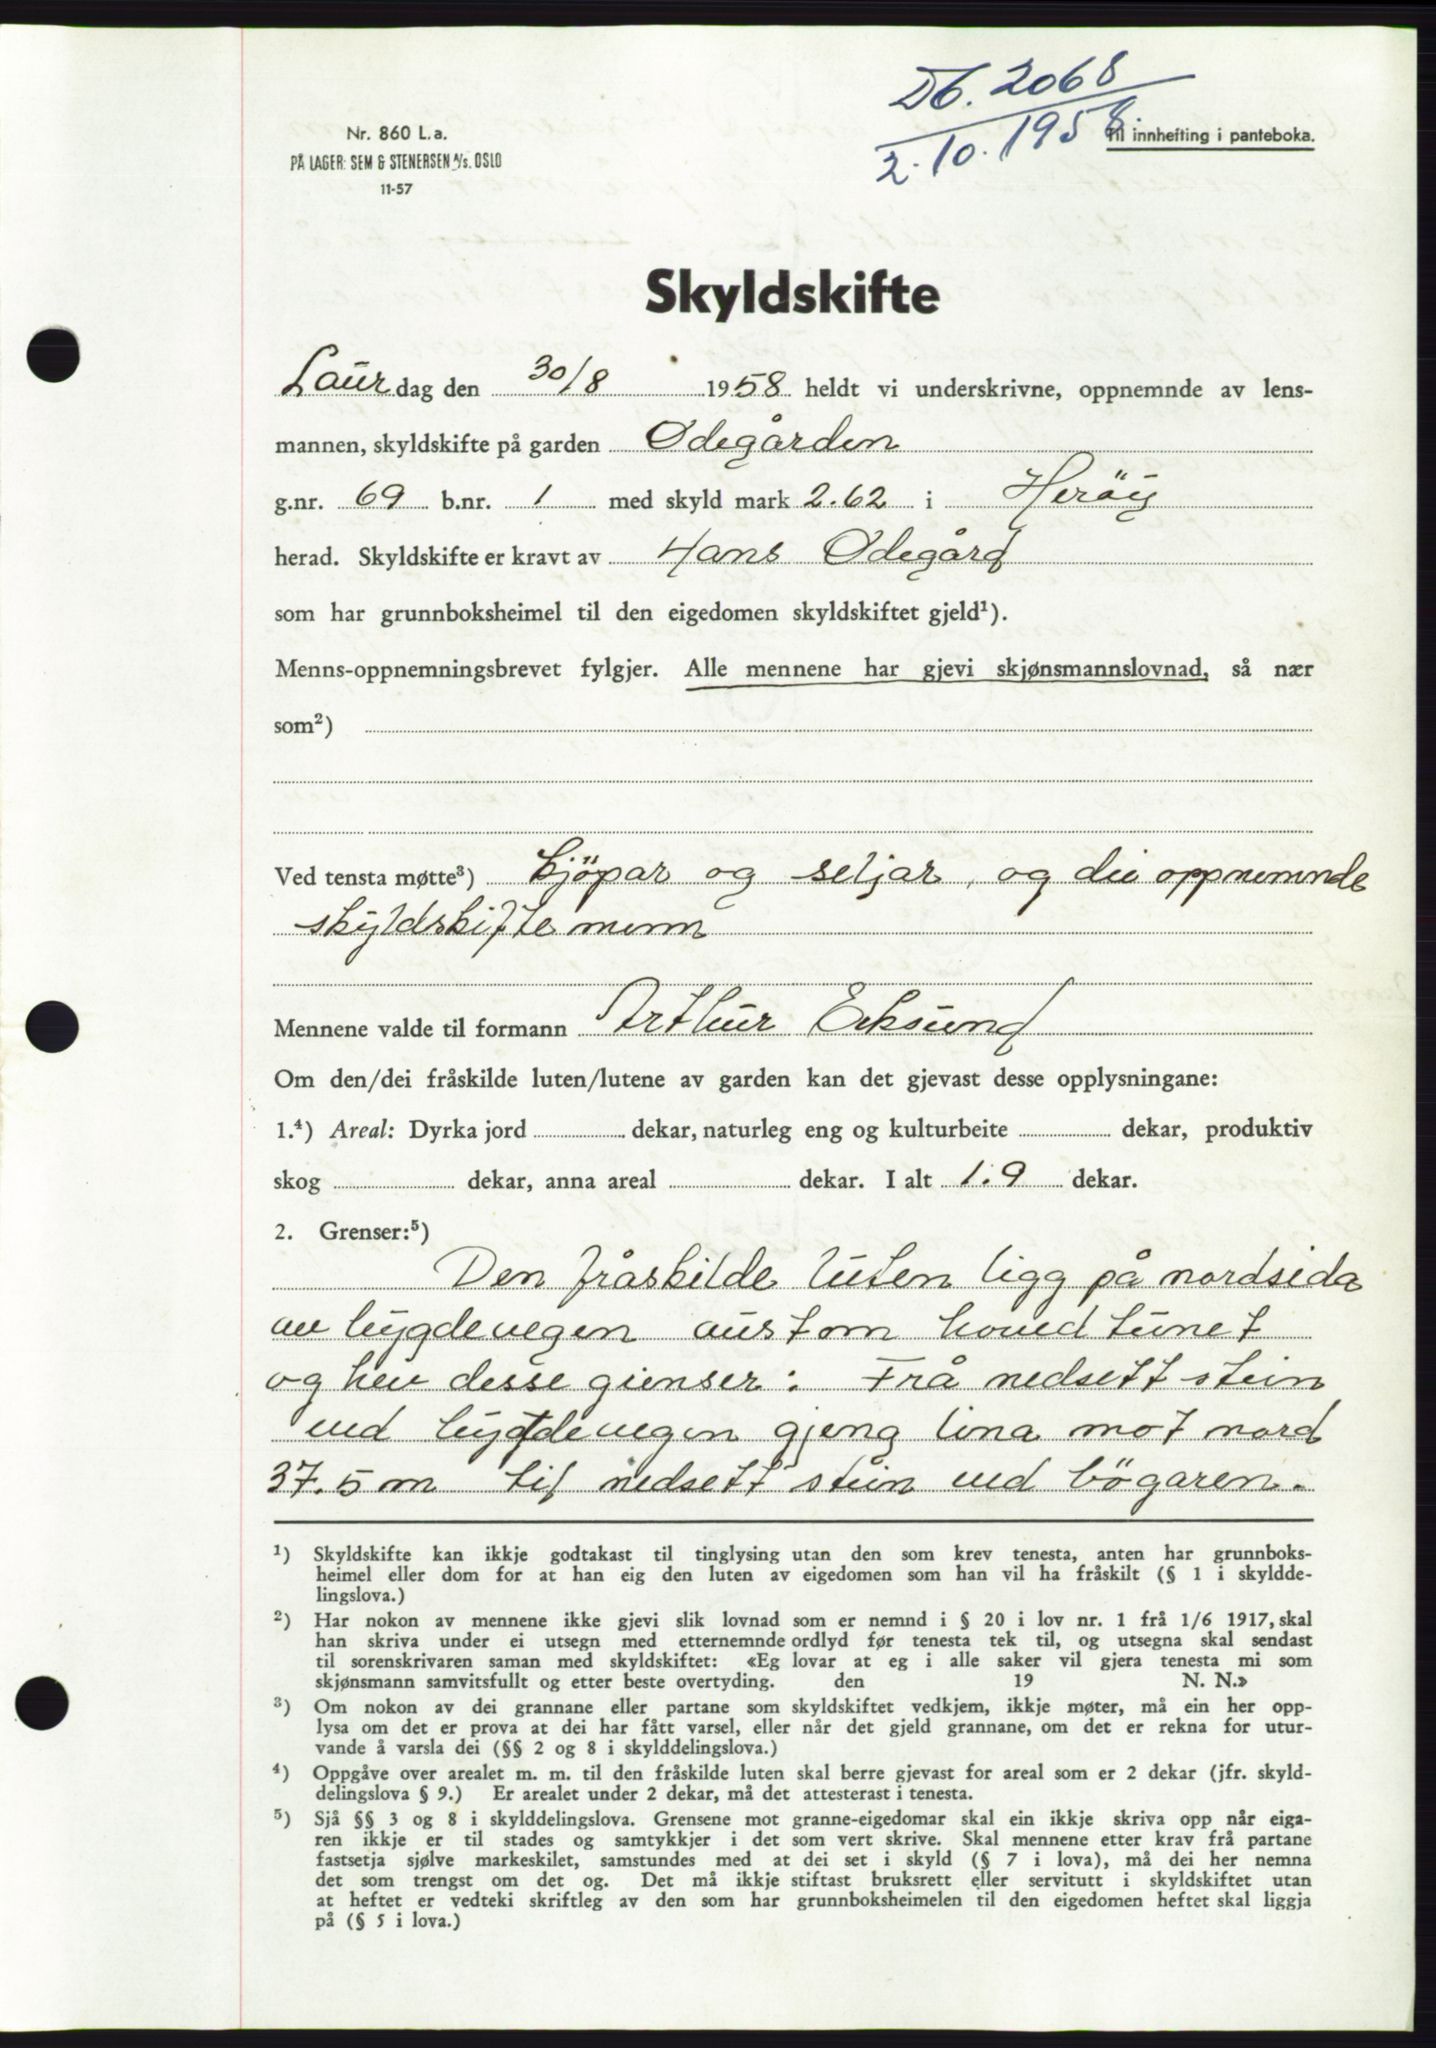 Db. 2068
2.10.1958.
Nr. 860 L.a.
PÅ LAGER: SEM & STENERSEN A/S. OSLO
11-57
Til innhefting i panteboka.
Skyldskifte
Laurdag den 30/8 1958 heldt vi underskrivne, oppnemnde av lens-
mannen, skyldskifte på garden Ødegården
g.nr. 69 b.nr. 1 med skyld mark 2.62 i Herøy
herad. Skyldskifte er kravt av Hans Ødegård
som har grunnboksheimel til den eigedomen skyldskiftet gjeld¹).
Menns-oppnemningsbrevet fylgjer. Alle mennene har gjevi skjønsmannslovnad, så nær
som²)
Ved tensta møtte³) kjöpar og seljar, og dei oppnemnde
skyldskiftemenn
Mennene valde til formann Arthur Eiksund
Om den/dei fråskilde luten/lutene av garden kan det gjevast desse opplysningane:
1.⁴) Areal: Dyrka jord dekar, naturleg eng og kulturbeite dekar, produktiv
skog dekar, anna areal dekar. I alt 1.9 dekar.
2. Grenser:⁵)
Den fråskilde luten ligg på nordsida
av bygdevegen austom hovedtunet
og hev desse grenser: Frå nedsett stein
ved bygdevegen gjeng lina mot nord
37.5 m til nedsett stein ved bögaren.
¹) Skyldskifte kan ikkje godtakast til tinglysing utan den som krev tenesta, anten har grunnboks-
heimel eller dom for at han eig den luten av eigedomen som han vil ha fråskilt (§ 1 i skyldde-
lingslova.)
²) Har nokon av mennene ikke gjevi slik lovnad som er nemnd i § 20 i lov nr. 1 frå 1/6 1917, skal
han skriva under ei utsegn med etternemnde ordlyd før tenesta tek til, og utsegna skal sendast
til sorenskrivaren saman med skyldskiftet: «Eg lovar at eg i alle saker vil gjera tenesta mi som
skjønsmann samvitsfullt og etter beste overtyding. den 19 N. N.»
³) Om nokon av dei grannane eller partane som skyldskiftet vedkjem, ikkje møter, må ein her opp-
lysa om det er prova at dei har fått varsel, eller når det gjeld grannane, om det er rekna for utur-
vande å varsla dei (§§ 2 og 8 i skylddelingslova.)
⁴) Oppgåve over arealet m. m. til den fråskilde luten skal berre gjevast for areal som er 2 dekar (jfr. skyld-
delingslova § 9.) Er arealet under 2 dekar, må det attesterast i tenesta.
⁵) Sjå §§ 3 og 8 i skylddelingslova. Grensene mot granne-eigedomar skal ein ikkje skriva opp når eiga-
ren ikkje er til stades og samtykkjer i det som vert skrive. Skal mennene etter krav frå partane
fastsetja sjølve markeskilet, samstundes med at dei set i skyld (§ 7 i lova), må dei her nemna
det som trengst om det og. Det må ikkje stiftast bruksrett eller servitutt i skyldskiftet utan
at heftet er vedteki skriftleg av den som har grunnboksheimelen til den eigedomen heftet skal liggja
på (§ 5 i lova.)